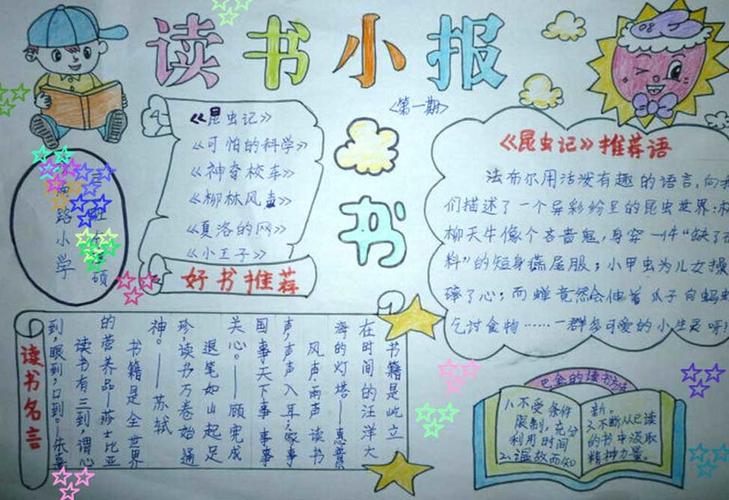 读书小报
<第一期>
08
《昆虫记》
《可怕的科学》
《神奇校车》
《柳林风声》
《夏洛的网》
《小王子》
好书推荐
书
路小学
硕
《昆虫记》推荐语
法布尔用活泼有趣的语言,向我
们描述了一个异彩纷呈的昆虫世界:
柳天牛像个吝啬鬼,身穿一件“缺了
料”的短身燕尾服;小甲虫为儿女操
碎了心;而蝉竟然会伸着爪子向蚂蚁
乞讨食物……一群多可爱的小生灵呀!
书籍是屹立
在时间的汪洋大
海的灯塔——惠普
风声雨声读书
声,声声入耳,家事
国事天下事事事
关心。——顾宪成
退笔如山起足
珍,读书万卷始通
神。——苏轼
书籍是全世界
的营养品——莎士比亚
读书有三到,谓心
到,眼到,口到。——朱熹
读书名言
巴金的读书方法
1.不受条件
限制,充分
利用时间
2.温故而知
新。
2.不断从已读
的书中汲取
精神力量。